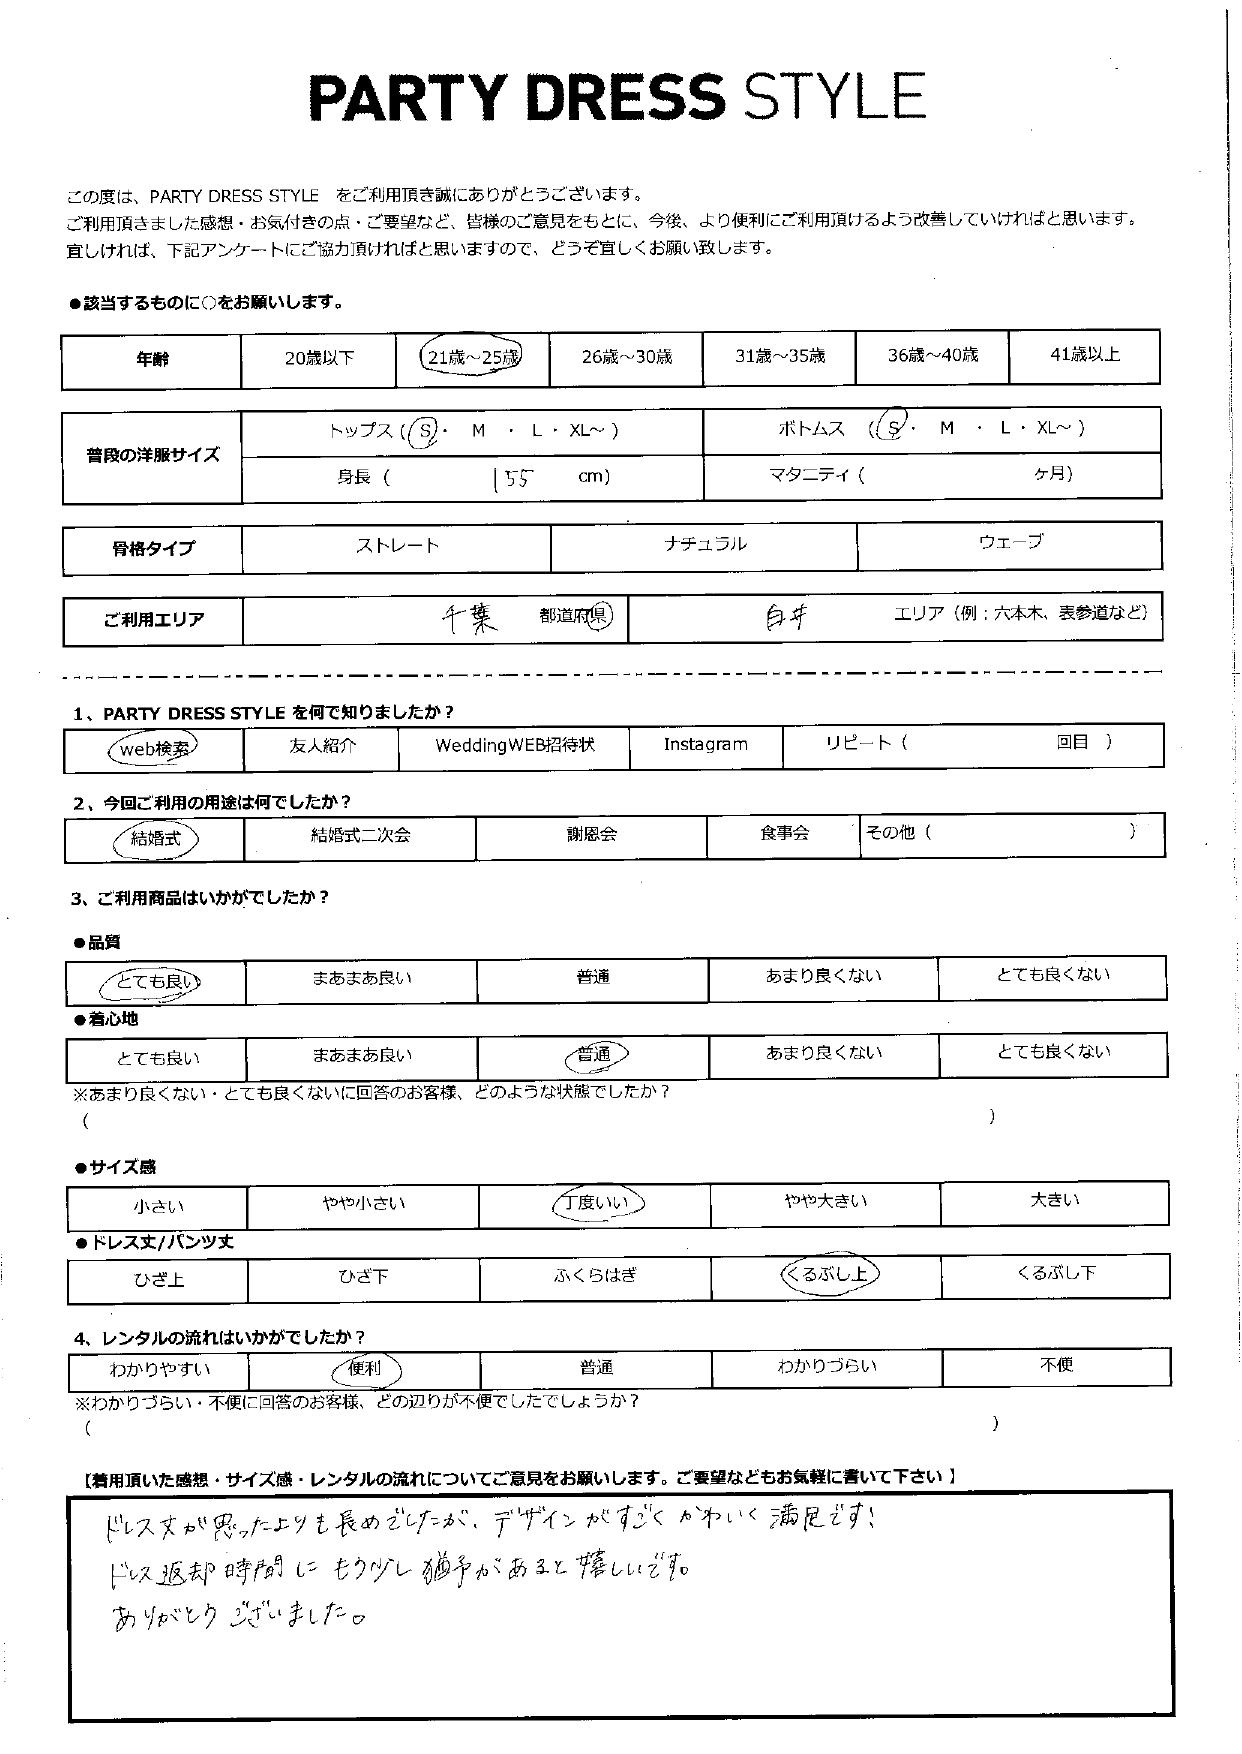 PARTY DRESS STYLE
この度は、PARTY DRESS STYLE をご利用頂き誠にありがとうございます。
ご利用頂きました感想・お気付きの点・ご要望など、皆様のご意見をもとに、今後、より便利にご利用頂けるよう改善していければと思います。
宜しければ、下記アンケートにご協力頂ければと思いますので、どうぞ宜しくお願い致します。
●該当するものに○をお願いします。
年齢 20歳以下 21歳～25歳 26歳～30歳 31歳～35歳 36歳～40歳 41歳以上
普段の洋服サイズ
トップス (S)・ M ・ L・ XL～ ) ボトムス (S・ M ・ L・ XL～ )
身長 ( 155 cm) マタニティ ( ヶ月)
骨格タイプ ストレート ナチュラル ウェーブ
ご利用エリア 千葉 都道府県 白井 エリア（例：六本木、表参道など）
1、PARTY DRESS STYLE を何で知りましたか？
web検索 友人紹介 WeddingWEB招待状 Instagram リピート ( 回目 )
2、今回ご利用の用途は何でしたか？
結婚式 結婚式二次会 謝恩会 食事会 その他 ( )
3、ご利用商品はいかがでしたか？
●品質
とても良い まあまあ良い 普通 あまり良くない とても良くない
●着心地
とても良い まあまあ良い 普通 あまり良くない とても良くない
※あまり良くない・とても良くないに回答のお客様、どのような状態でしたか？
( )
●サイズ感
小さい やや小さい 丁度いい やや大きい 大きい
●ドレス丈/パンツ丈
ひざ上 ひざ下 ふくらはぎ くるぶし上 くるぶし下
4、レンタルの流れはいかがでしたか？
わかりやすい 便利 普通 わかりづらい 不便
※わかりづらい・不便に回答のお客様、どの辺りが不便でしたでしょうか？
( )
【着用頂いた感想・サイズ感・レンタルの流れについてご意見をお願いします。ご要望などもお気軽に書いて下さい】
ドレス丈が思ったよりも長めでしたが、デザインがすごくかわいく満足です！
ドレス返却時間にもう少し猶予があると嬉しいです。
ありがとうございました。